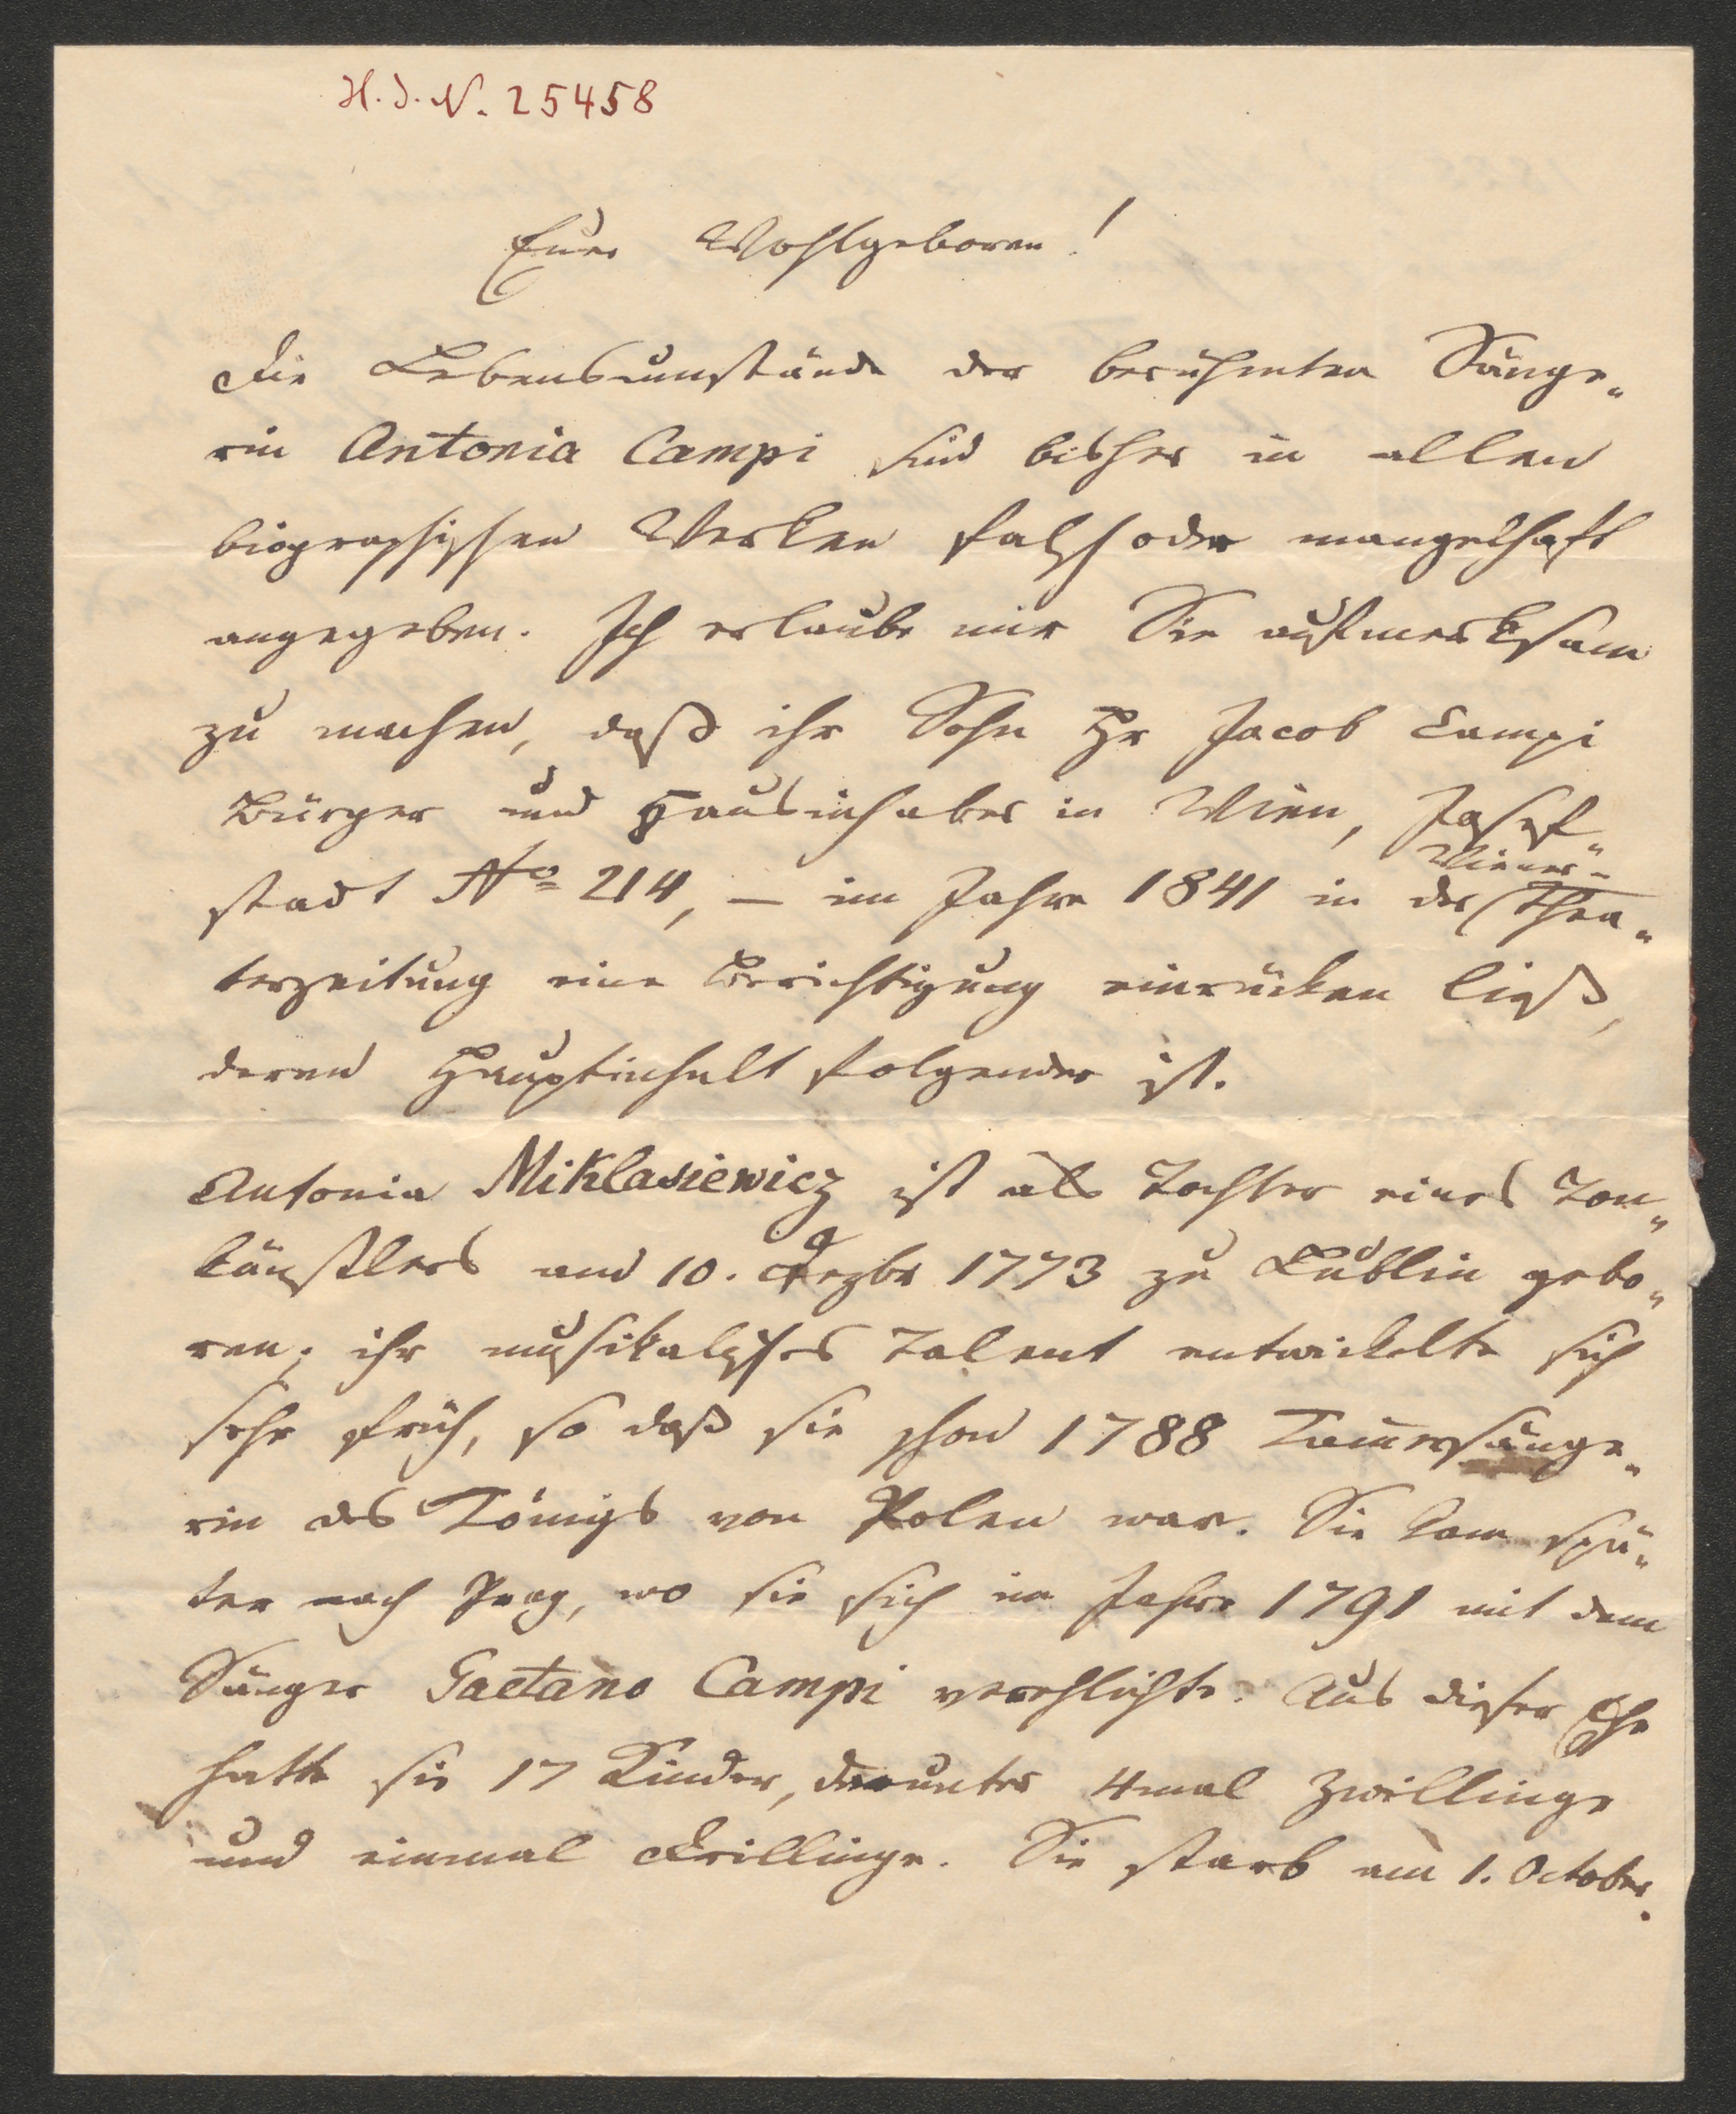 H. I. N. 25458
Euer Wohlgeboren!
Die Lebensumstände der berühmten Sänge„
rin Antonia Campi sind bisher in allen
biographischen Werken falsch oder mangelhaft
angegeben. Ich erlaube mir Sie aufmerksam
zu machen, daß ihr Sohn Hr Jacob Campi
Bürger und Hausinhaber in Wien, Josef„
stadt No 214, – im Jahre 1841 in der Wiener- Thea„
terzeitung eine Berichtigung einrücken ließ,
deren Hauptinhalt folgender ist.
Antonia Miklasiewicz ist als Tochter eines Ton„
künstlers am 10. Dezbr 1773 zu Lublin gebo„
ren; ihr musikalisches Talent entwickelte sich
sehr früh, so daß sie schon 1788 Kam̅ersänge„
rin des Königs von Polen war. Sie kam spä„
ter nach Prag, wo sie sich im Jahre 1791 mit dem
Sänger Gaetano Campi verehlichte. Aus dieser Ehe
hatte sie 17 Kinder, darunter 4mal Zwillinge
und einmal Drillinge. Sie starb am 1. October.